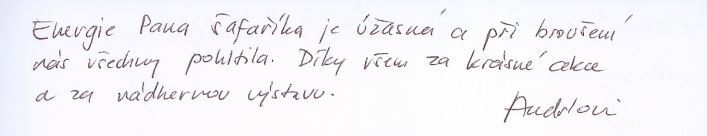 Energie Pana Šafaříka je úžasná a při broušení
nás všechny pohltila. Díky všem za krásné akce
a za nádhernou výstavu.